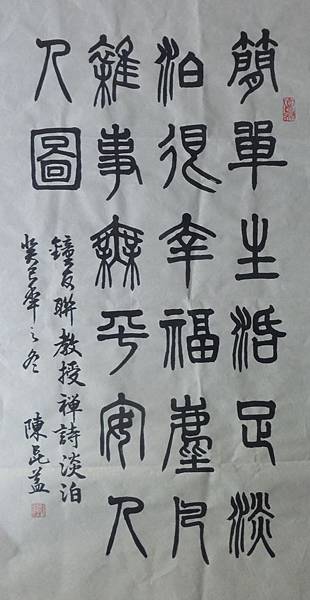 簡單生活足淡
泊很幸福塵凡
雜事無平安人
人圖
鐘友聯教授禪詩淡泊
癸巳年之冬 陳昆益